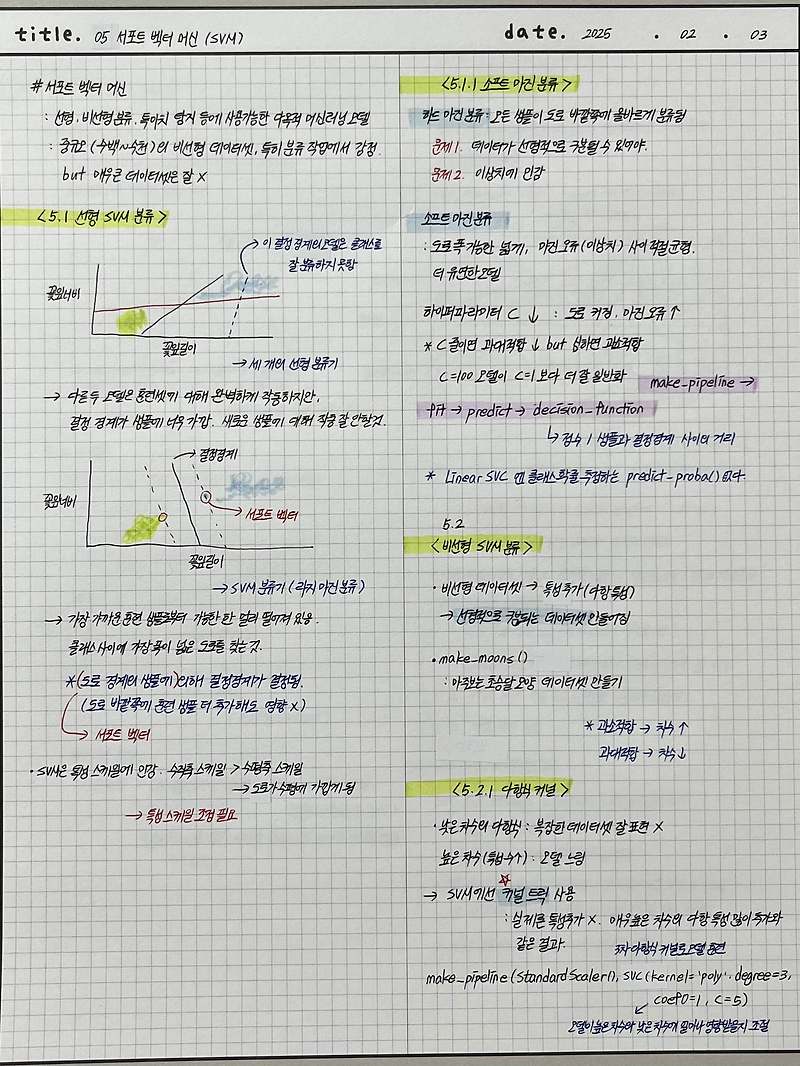 title. 05 서포트 벡터 머신 (SVM)
date. 2025 . 02 . 03
# 서포트 벡터 머신
: 선형, 비선형 분류, 특이치 탐지 등에 사용가능한 다목적 머신러닝 모델
: 중규모 (수백~수천)의 비선형 데이터셋, 특히 분류 작업에서 강점.
but 매우 큰 데이터셋은 잘 X
<5.1 선형 SVM 분류>
이 결정 경계의 모델은 클래스를
잘 분류하지 못함
꽃잎너비
꽃잎길이
→ 세 개의 선형 분류기
→ 다른 두 모델은 훈련셋에 대해 완벽하게 작동하지만,
결정 경계가 샘플에 너무 가깝. 새로운 샘플에 대해 작동 잘 안할것.
→ 결정경계
꽃잎너비
→ 서포트 벡터
꽃잎길이
→ SVM 분류기 (라지 마진 분류)
→ 가장 가까운 훈련 샘플로부터 가능한 한 멀리 떨어져 있음.
클래스 사이에 가장 폭이 넓은 도로를 찾는 것.
*(도로 경계의 샘플에)의해 결정경계가 결정됨.
(도로 바깥쪽에 훈련 샘플 더 추가해도 영향 X)
→ 서포트 벡터
· SVM은 특성 스케일에 민감. 수직축 스케일 > 수평축 스케일
→ 도로가 수평에 가깝게 됨
→ 특성 스케일 조정 필요
<5.1.1 소프트 마진 분류>
하드 마진 분류 : 모든 샘플이 도로 바깥쪽에 올바르게 분류됨
문제 1. 데이터가 선형적으로 구분될 수 있어야.
문제 2. 이상치에 민감
소프트 마진 분류
: 도로 폭 가능한 넓게, 마진 오류(이상치) 사이 적절 균형.
더 유연한 모델
하이퍼파라미터 C ↓ : 도로 커짐, 마진 오류 ↑
* C 줄이면 과대적합 ↓ but 심하면 과소적합
C=100 모델이 C=1 보다 더 잘 일반화
make_pipeline →
fit → predict → decision_function
↳ 점수 / 샘플과 결정경계 사이의 거리
* Linear SVC 엔 클래스 확률 추정하는 predict_proba() 없다.
5.2
<비선형 SVM 분류>
· 비선형 데이터셋 → 특성 추가 (다항 특성)
→ 선형적으로 구분되는 데이터셋 만들어짐
· make_moons()
: 마주보는 초승달 모양 데이터셋 만들기
* 과소적합 → 차수 ↑
과대적합 → 차수 ↓
<5.2.1 다항식 커널>
· 낮은 차수의 다항식 : 복잡한 데이터셋 잘 표현 X
높은 차수 (특성 수↑) : 모델 느림
→ SVM에선 커널 트릭 사용
: 실제론 특성추가 X. 매우 높은 차수의 다항 특성 많이 추가와
같은 결과.
3차 다항식 커널로 모델 훈련
make_pipeline (StandardScaler(), SVC(kernel='poly', degree=3,
coef0=1, C=5)
모델이 높은 차수와 낮은 차수에 얼마나 영향받을지 조절